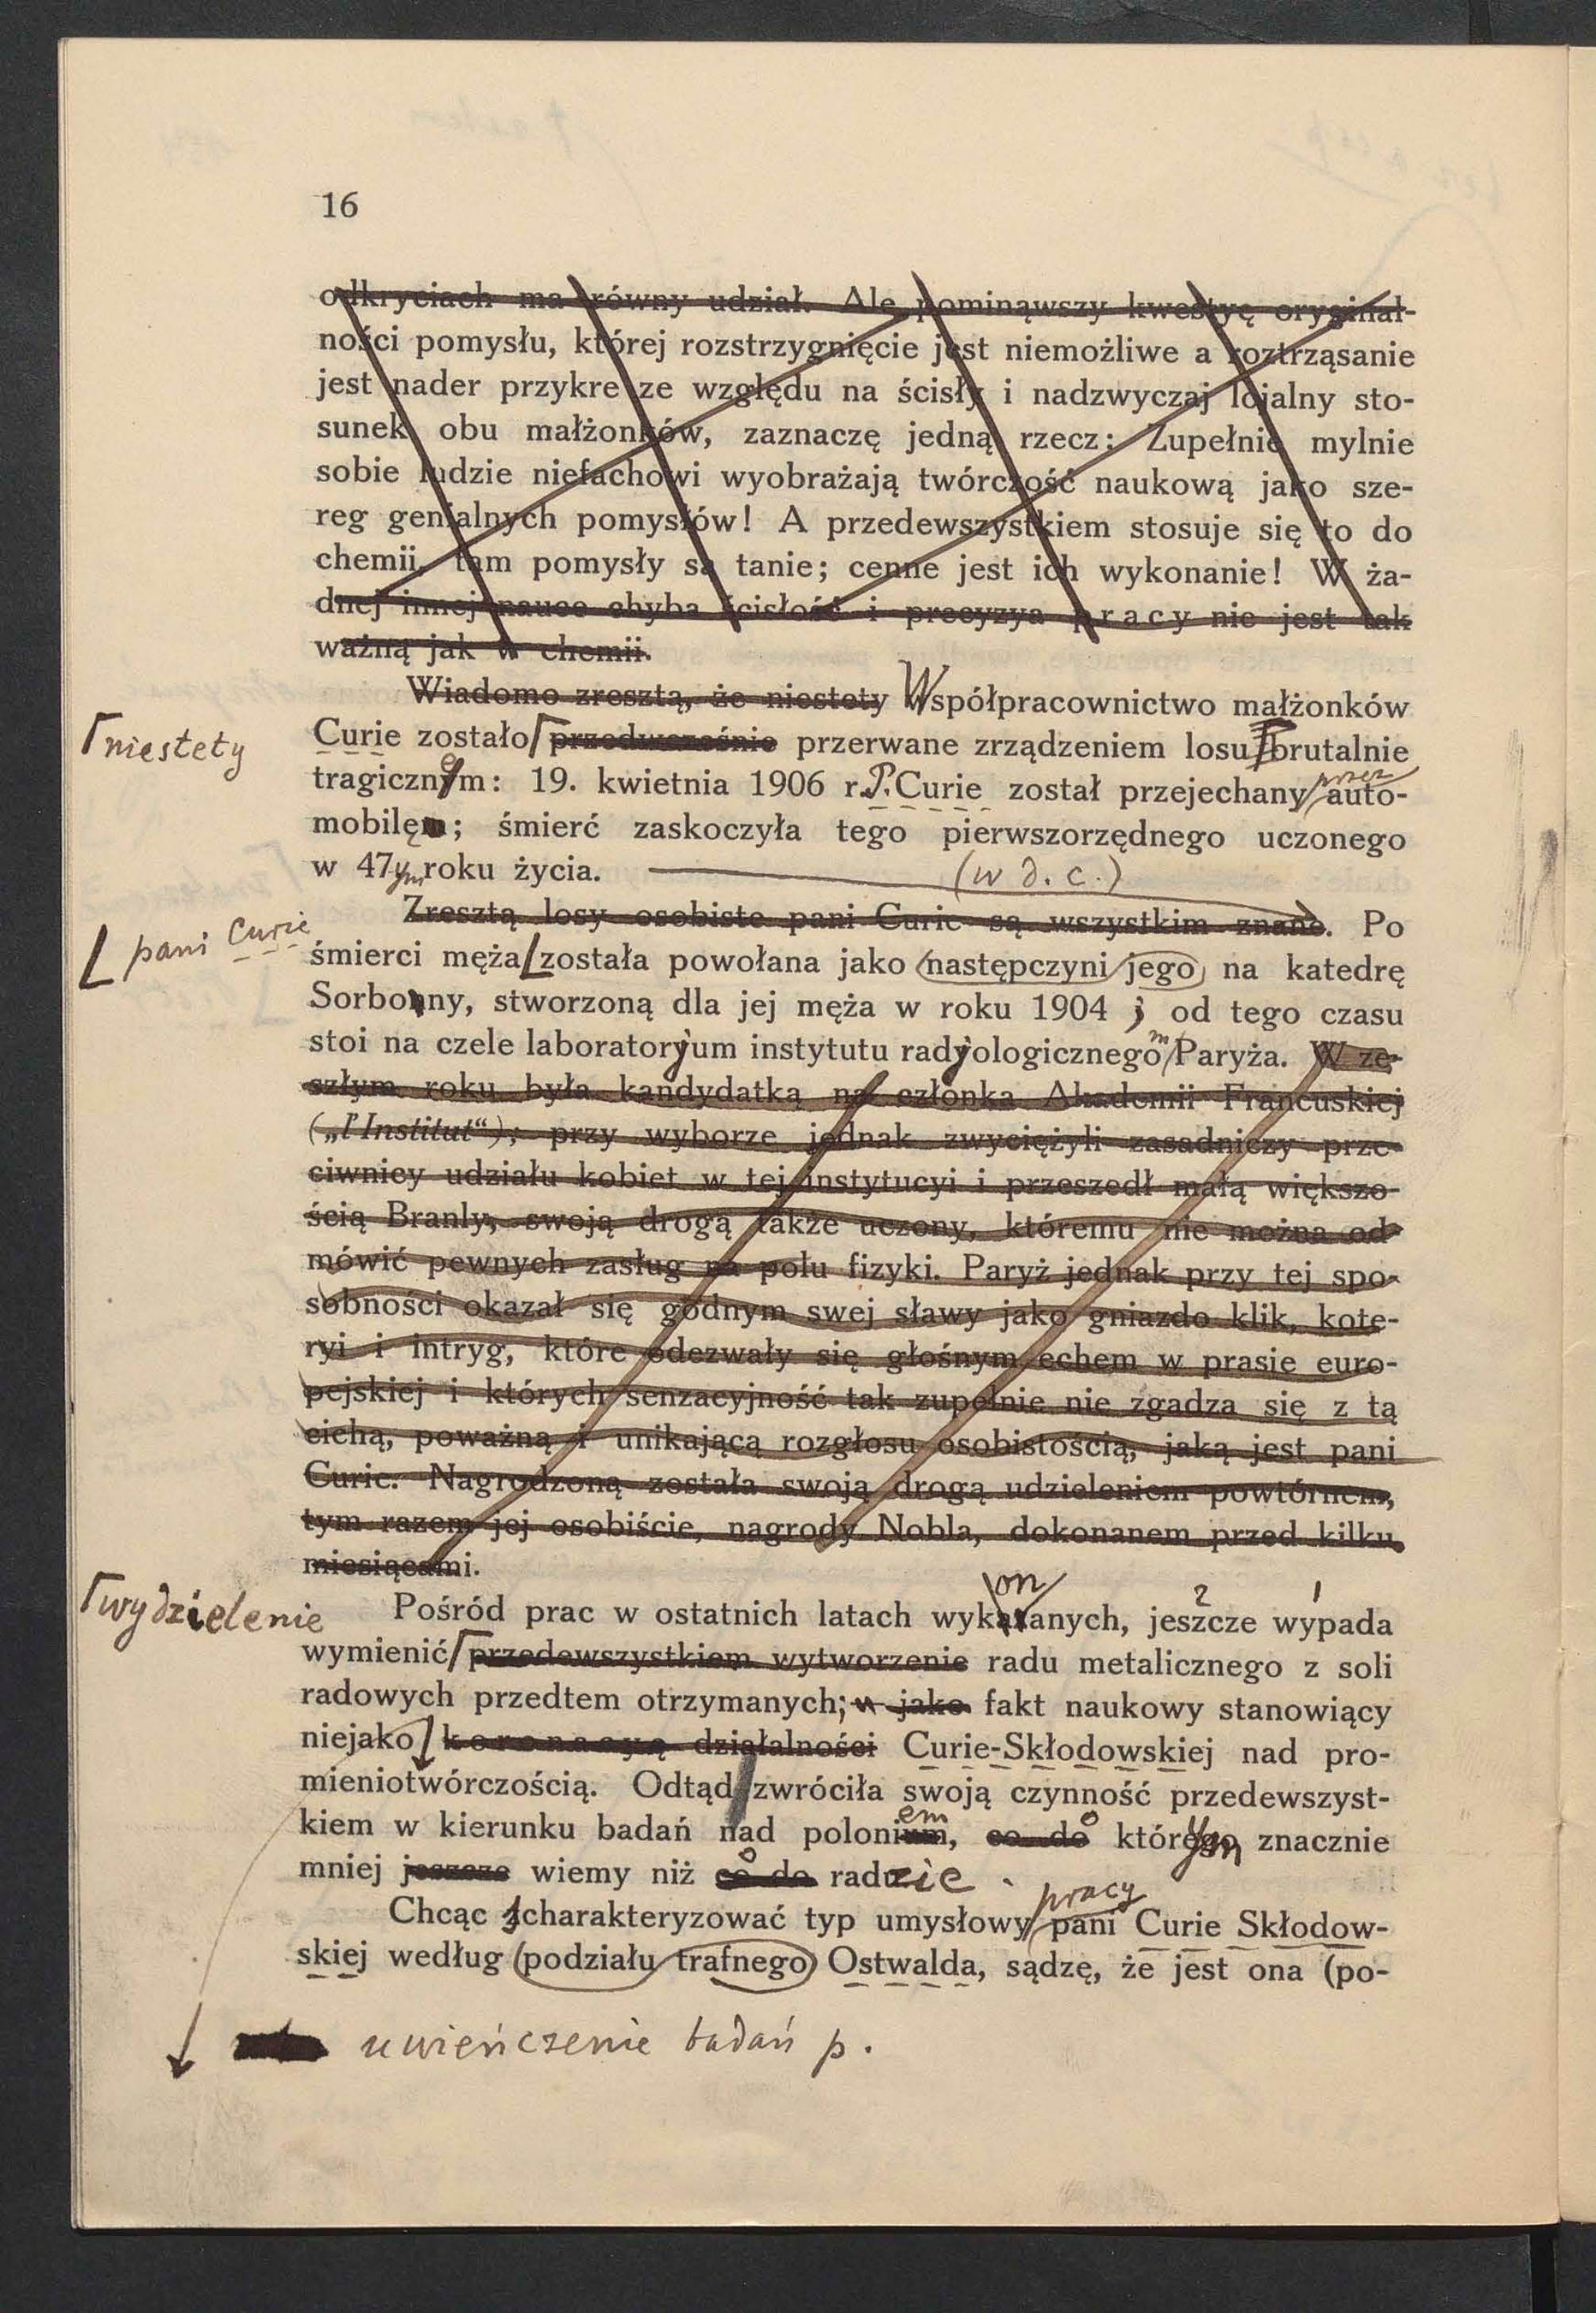 16
odkryciach ma równy udział. Ale pominąwszy kwestyę oryginal-
ności pomysłu, której rozstrzygnięcie jest niemożliwe a roztrząsanie
jest nader przykre ze względu na ścisły i nadzwyczaj lojalny sto-
sunek obu małżonków, zaznaczę jedną rzecz: Zupełnie mylnie
sobie ludzie niefachowi wyobrażają twórczość naukową jako sze-
reg genialnych pomysłów! A przedewszystkiem stosuje się to do
chemii, tam pomysły są tanie; cenne jest ich wykonanie! W ża-
dnej innej nauce chyba ścisłość i precyzya pracy nie jest tak
ważną jak w chemii.
Wiadomo zresztą, że niestety Współpracownictwo małżonków
niestety
Curie zostało przedwcześnie przerwane zrządzeniem losu brutalnie
przez
tragicznem: 19. kwietnia 1906 r. P. Curie został przejechany auto-
mobilem; śmierć zaskoczyła tego pierwszorzędnego uczonego
w 47ym roku życia. (w d. c.)
Zresztą losy osobiste pani Curie są wszystkim znane. Po
pani Curie
śmierci męża została powołana jako następczyni jego na katedrę
Sorbonny, stworzoną dla jej męża w roku 1904; od tego czasu
stoi na czele laboratoryjum instytutu radyjologicznego m Paryża. W ze-
szłym roku była kandydatką na członka Akademii Francuskiej
(„l'Institut“); przy wyborze jednak zwyciężyli zasadniczy prze-
ciwnicy udziału kobiet w tej instytucyi i przeszedł małą większo-
ścią Branly, swoją drogą także uczony, któremu nie można od-
mówić pewnych zasług na polu fizyki. Paryż jednak przy tej spo-
sobności okazał się godnym swej sławy jako gniazdo klik, kote-
ryi i intryg, które odezwały się głośnym echem w prasie euro-
pejskiej i których senzacyjność tak zupełnie nie zgadza się z tą
cichą, poważną i unikającą rozgłosu osobistością, jaką jest pani
Curie. Nagrodzoną została swoją drogą udzieleniem powtórnem,
tym razem jej osobiście, nagrody Nobla, dokonanem przed kilku
miesiącami.
on 2 1
wydzielenie
Pośród prac w ostatnich latach wykazanych, jeszcze wypada
wymienić przedewszystkiem wytworzenie radu metalicznego z soli
radowych przedtem otrzymanych; jako fakt naukowy stanowiący
niejako koronacyą działalności Curie-Skłodowskiej nad pro-
mieniotwórczością. Odtąd zwróciła swoją czynność przedewszyst-
em o
kiem w kierunku badań nad polonium, co do którego ym znacznie
o
mniej jeszcze wiemy niż co do radzie.
pracy
Chcąc scharakteryzować typ umysłowy pani Curie Skłodow-
skiej według podziału trafnego Ostwalda, sądzę, że jest ona (po-
uwieńczenie badań p.